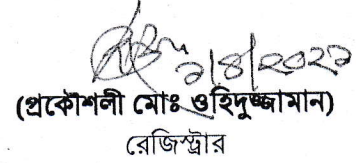 ২/৪/২০২২
(প্রকৌশলী মোঃ ওহিদুজ্জামান)
রেজিস্ট্রার